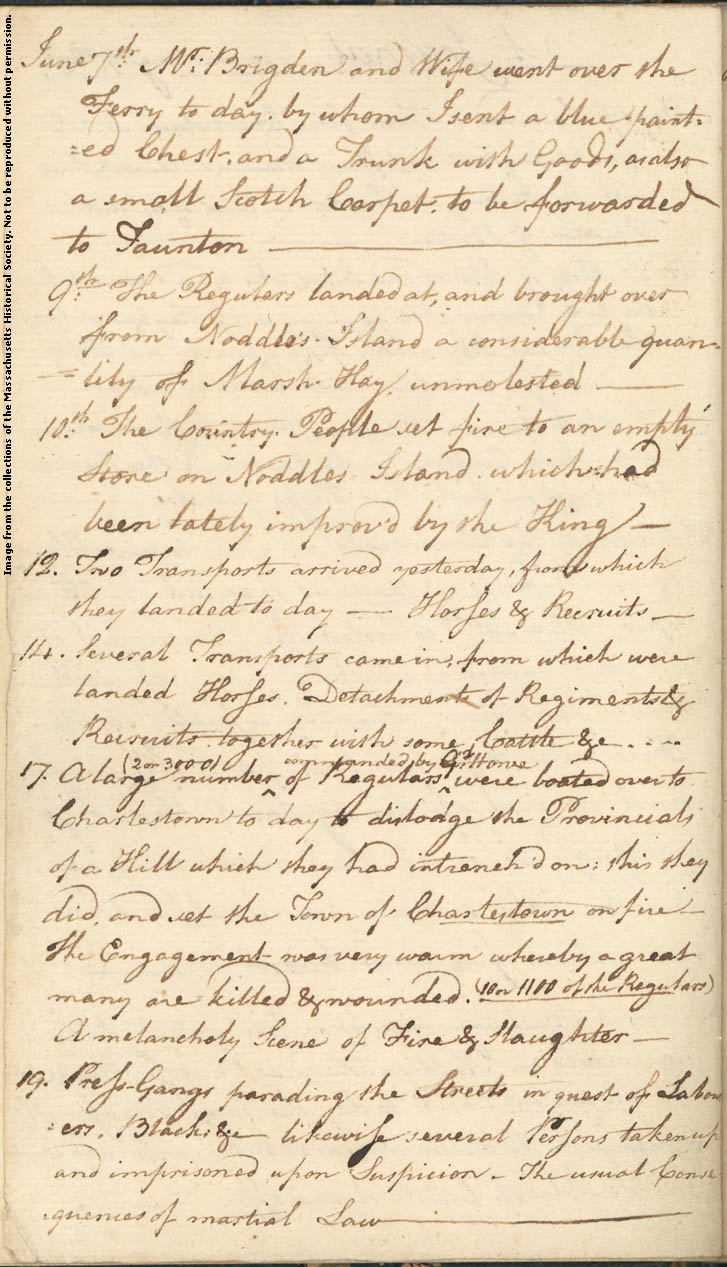 Image from the collections of the Massachusetts Historical Society. Not to be reproduced without permission.
June 7th. Mr. Brigden and Wife went over the
Ferry to day. by whom I sent a blue paint-
=ed Chest, and a Trunk with Goods, as also
a small Scotch Carpet. to be forwarded
to Taunton
9th. The Regulars landed at, and brought over
from Noddles-Island a considerable quan-
=tity of Marsh-Hay, unmolested
10th. The Country-People set fire to an empty
Store on Noddles Island which had
been lately improv'd by the King
12. Two Transports arrived yesterday, from which
they landed to day — Horses & Recruits
14. Several Transports came in, from which were
landed Horses. Detachment of Regiments &
Recruits together with some Cattle &c ....
(2 or 3000) commanded by Gl. Howe
17. A large number ^ of Regulars ^ were boated over to
Charlestown to day to dislodge the Provincials
of a Hill which they had intrench'd on: this they
did, and set the Town of Charlestown on fire
the Engagement was very warm whereby a great
many are killed & wounded. (10 or 1100 of the Regulars)
A melancholy Scene of Fire & Slaughter
19. Press-Gangs parading the Streets in quest of Labou
=ers. Blacks &c likewise several Persons taken up
and imprisoned upon Suspicion - The usual Conse
quences of martial Law